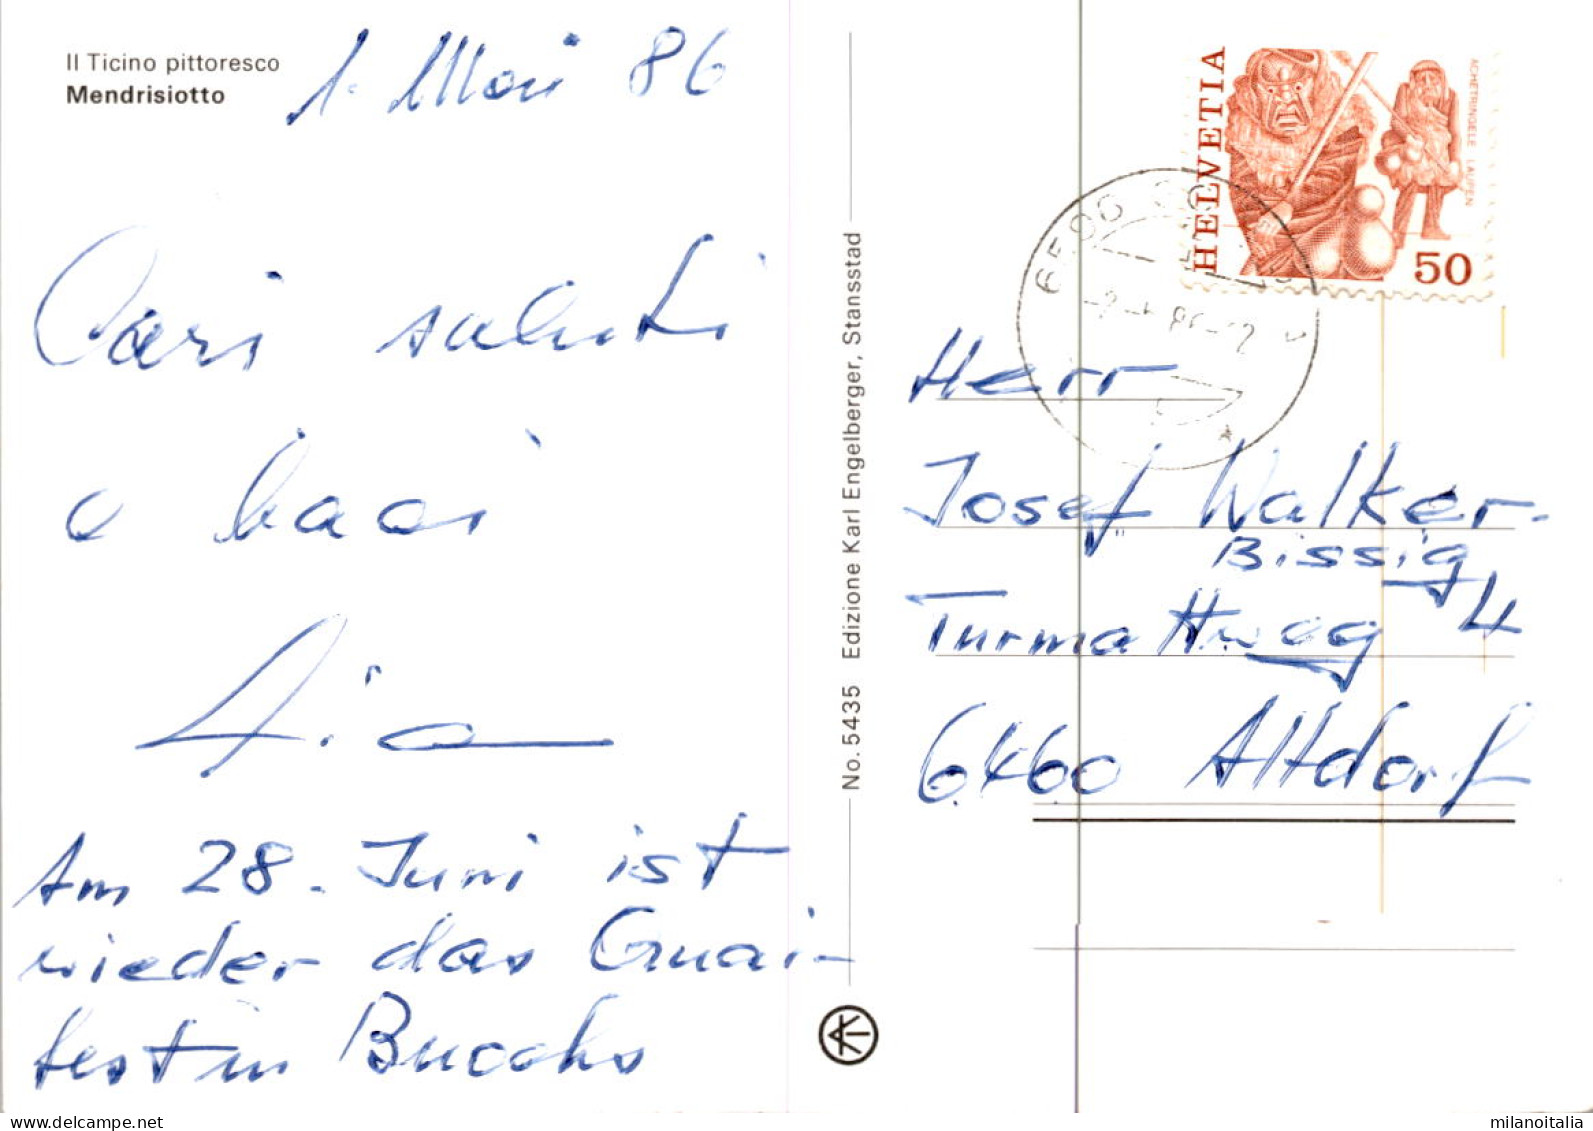 Il Ticino pittoresco
Mendrisiotto
1. Mai 86
Cari saluti
e baci
Am 28. Juni ist
wieder das Quai-
fest in Buochs
No. 5435 Edizione Karl Engelberger, Stansstad
HELVETIA
ACHETRINGELE LAUPEN
50
Herr
Josef Walker-
Bissig
Turmattweg 4
6460 Altdorf
www.milanoitalia.com